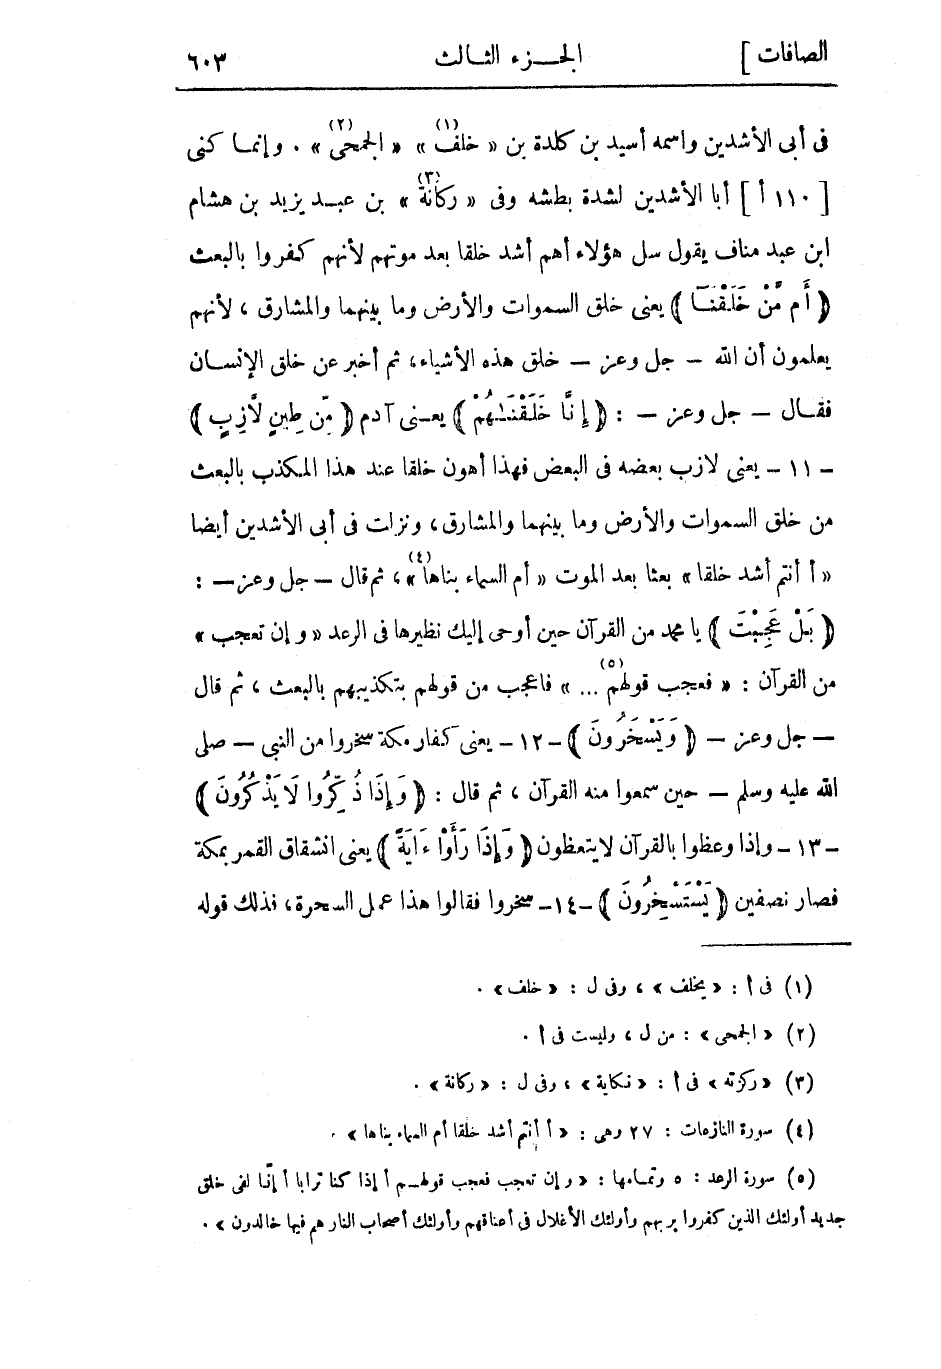 الصافات ] الجـزء الثـالث ٦٠٣
فى أبى الأشدين واسمه أسيد بن كلدة بن « خلف(١) » « الجمحى(٢) » . وإنمـا كنى
[ ١١٠ أ ] أبا الأشدين لشدة بطشه وفى « ركانة(٣) » بن عبـد يزيد بن هشام
ابن عبد مناف يقول سل هؤلاء أهم أشد خلقا بعد موتهم لأنهم كفروا بالبعث
﴿ أَم مَّنْ خَلَقْنَـآ ﴾ يعنى خلق السموات والأرض وما بينهما والمشارق ، لأنهم
يعلمون أن الله – جل وعز – خلق هذه الأشياء، ثم أخبر عن خلق الإنسـان
فقـال – جل وعز – : ﴿ إِنَّا خَلَقْنَـٰهُمْ ﴾ يعـنى آدم ﴿ مِّن طِينٍ لَّازِبٍ ﴾
– ١١ – يعنى لازب بعضه فى البعض فهذا أهون خلقا عند هذا المكذب بالبعث
من خلق السموات والأرض وما بينهما والمشارق، ونزلت فى أبى الأشدين أيضا
« أ أنتم أشد خلقا » بعثا بعد الموت « أم السماء بناها(٤) »، ثم قال – جل وعز – :
﴿ بَلْ عَجِبْتَ ﴾ يا محمد من القرآن حين أوحى إليك نظيرها فى الرعد « وإن تعجب »
من القرآن : « فعجب قولهم(٥) ... » فاعجب من قولهم بتكذيبهم بالبعث ، ثم قال
– جل وعز – ﴿ وَيَسْخَرُونَ ﴾ – ١٢ – يعنى كفار مكة سخروا من النبى – صلى
الله عليه وسلم – حين سمعوا منه القرآن ، ثم قال : ﴿ وَإِذَا ذُكِّرُوا لَا يَذْكُرُونَ ﴾
– ١٣ – وإذا وعظوا بالقرآن لايتعظون ﴿ وَإِذَا رَأَوْا ءَايَةً ﴾ يعنى انشقاق القمر بمكة
فصار نصفين ﴿ يَسْتَسْخِرُونَ ﴾ – ١٤ – سخروا فقالوا هذا عمل السحرة، فذلك قوله
(١) فى أ : « يخلف » ، وفى ل : « خلف » .
(٢) « الجمحى » : من ل ، وليست فى أ .
(٣) « ركزته » فى أ : « نكاية » ، وفى ل : « ركانة » .
(٤) سورة النازعات : ٢٧ وهى : « أ أنتم أشد خلقا أم السماء بناها » .
(٥) سورة الرعد : ٥ وتمـامها : « وإن تعجب فعجب قولهـم أ إذا كنا ترابا أ إنّا لفى خلق
جديد أولئك الذين كفروا بربهم وأولئك الأغلال فى أعناقهم وأولئك أصحاب النار هم فيها خالدون » .